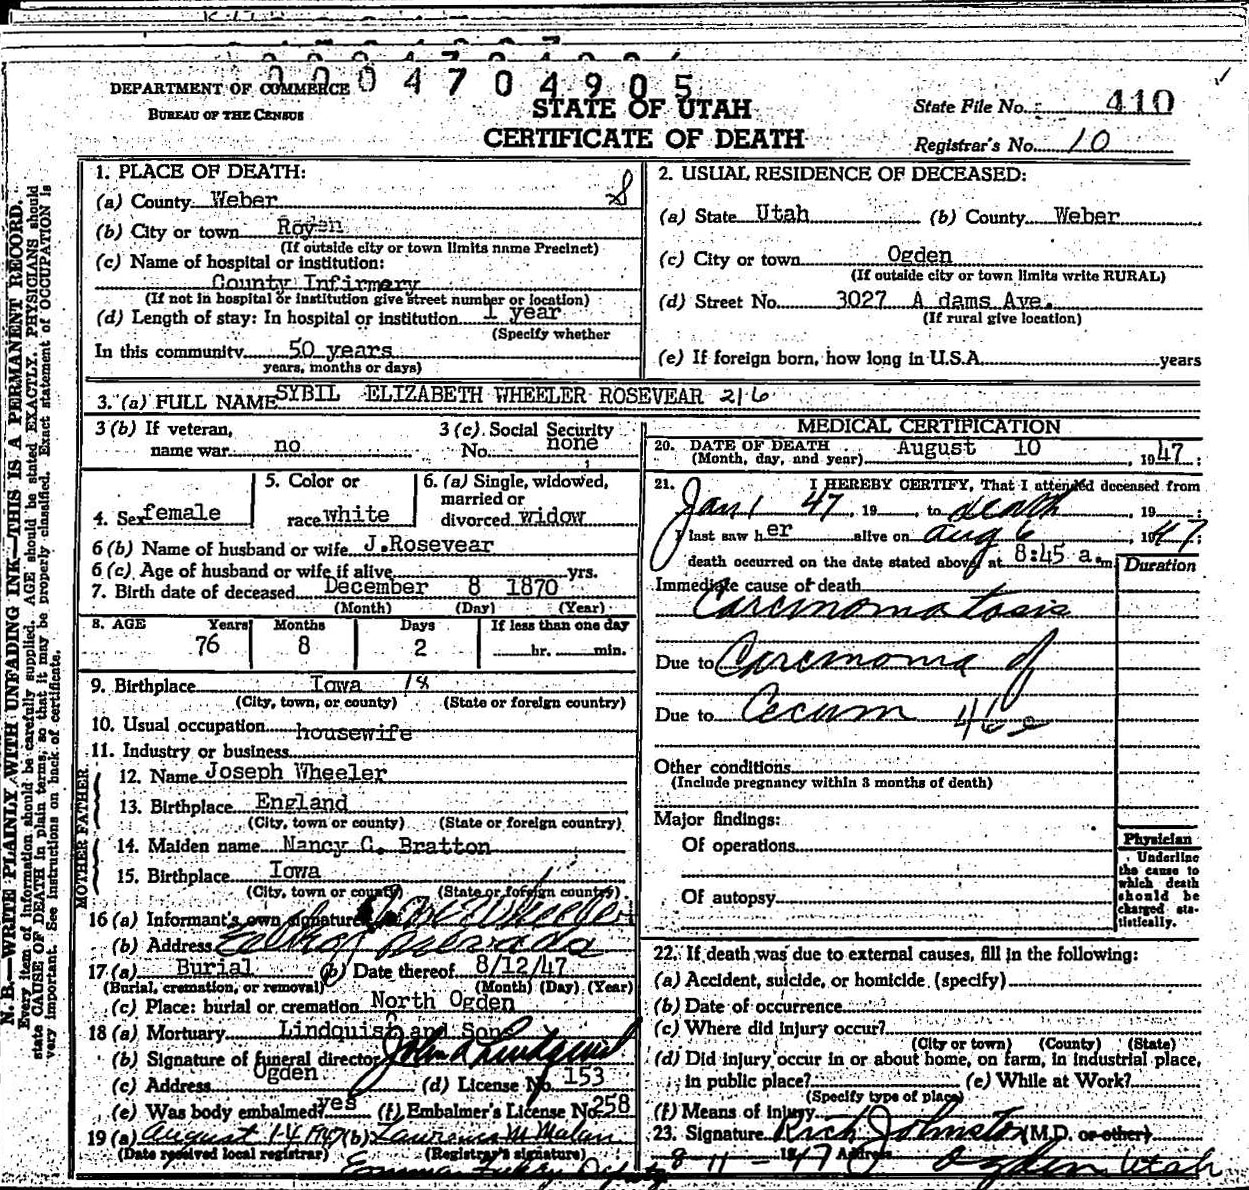 0004704905
DEPARTMENT OF COMMERCE
BUREAU OF THE CENSUS
STATE OF UTAH
CERTIFICATE OF DEATH
State File No. 410
Registrar's No. 10
N. B.—WRITE PLAINLY, WITH UNFADING INK—THIS IS A PERMANENT RECORD.
Every item of information should be carefully supplied. AGE should be stated EXACTLY. PHYSICIANS should
state CAUSE OF DEATH in plain terms, so that it may be properly classified. Exact statement of OCCUPATION is
very important. See instructions on back of certificate.
1. PLACE OF DEATH:
(a) County Weber
(b) City or town Royen
(If outside city or town limits name Precinct)
(c) Name of hospital or institution:
County Infirmery
(If not in hospital or institution give street number or location)
(d) Length of stay: In hospital or institution 1 year
(Specify whether
In this community 50 years
years, months or days)
2. USUAL RESIDENCE OF DECEASED:
(a) State Utah (b) County Weber
(c) City or town Ogden
(If outside city or town limits write RURAL)
(d) Street No. 3027 A dams Ave.
(If rural give location)
(e) If foreign born, how long in U.S.A. years
3. (a) FULL NAME SYBIL ELIZABETH WHEELER ROSEVEAR 216
3 (b) If veteran, name war no
3 (c) Social Security No. none
4. Sex female
5. Color or race white
6. (a) Single, widowed, married or divorced widow
6 (b) Name of husband or wife J.Rosevear
6 (c) Age of husband or wife if alive yrs.
7. Birth date of deceased December 8 1870
(Month) (Day) (Year)
8. AGE Years Months Days If less than one day
76 8 2 hr. min.
9. Birthplace Iowa 18
(City, town, or county) (State or foreign country)
10. Usual occupation housewife
11. Industry or business
FATHER
12. Name Joseph Wheeler
13. Birthplace England
(City, town or county) (State or foreign country)
MOTHER
14. Maiden name Nancy C. Bratton
15. Birthplace Iowa
(City, town or county) (State or foreign country)
16 (a) Informant's own signature Wheeler
(b) Address Nevada
17 (a) Burial (b) Date thereof 8/12/47
(Burial, cremation, or removal) (Month) (Day) (Year)
(c) Place: burial or cremation North Ogden
18 (a) Mortuary Lindquist and Sons
(b) Signature of funeral director John A Lindquist
(c) Address Ogden (d) License No. 153
(e) Was body embalmed? yes (f) Embalmer's License No. 258
19 (a) August 14 1947 (b) Lawrence M Malan
(Date received local registrar) (Registrar's signature)
Deputy
MEDICAL CERTIFICATION
20. DATE OF DEATH August 10, 1947
(Month, day, and year)
21. I HEREBY CERTIFY, That I attended deceased from
Jan 1 47, 19 to death, 19
I last saw her alive on Aug 6, 1947;
death occurred on the date stated above, at 8:45 a.m.
Duration
Immediate cause of death
Carcinomatosis
Due to Carcinoma of
Due to Cecum 46e
Other conditions
(Include pregnancy within 3 months of death)
Major findings:
Of operations
Of autopsy
Physician
Underline
the cause to
which death
should be
charged sta-
tistically.
22. If death was due to external causes, fill in the following:
(a) Accident, suicide, or homicide (specify)
(b) Date of occurrence
(c) Where did injury occur?
(City or town) (County) (State)
(d) Did injury occur in or about home, on farm, in industrial place,
in public place? (e) While at Work?
(Specify type of place)
(f) Means of injury
23. Signature Rich Johnston (M.D. or other)
8-11-47 Address Ogden, Utah